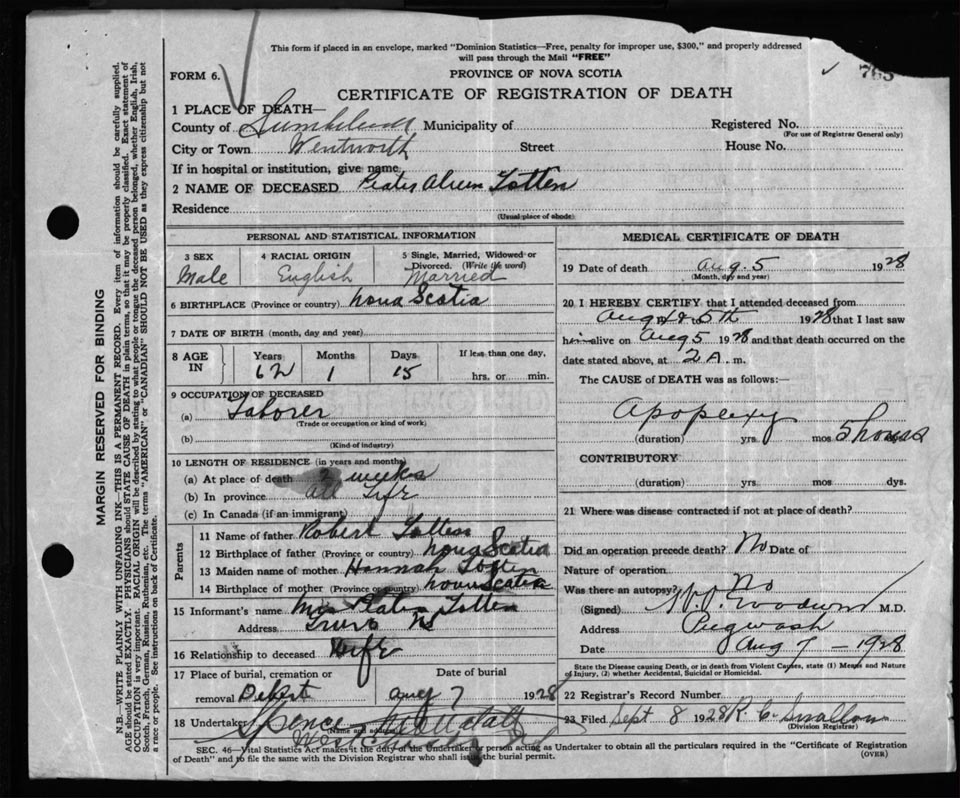 This form if placed in an envelope, marked "Dominion Statistics—Free, penalty for improper use, $300," and properly addressed
will pass through the Mail "FREE"
765
FORM 6.
PROVINCE OF NOVA SCOTIA
CERTIFICATE OF REGISTRATION OF DEATH
MARGIN RESERVED FOR BINDING
N.B.—WRITE PLAINLY WITH UNFADING INK—THIS IS A PERMANENT RECORD. Every item of information should be carefully supplied.
AGE should be stated EXACTLY. PHYSICIANS should STATE CAUSE OF DEATH in plain terms, so that it may be properly classified. Exact statement of
OCCUPATION is very important. RACIAL ORIGIN will be described by stating to what people or tongue the deceased person belonged, whether English, Irish,
Scotch, French, German, Russian, Ruthenian, etc. The terms "AMERICAN" or "CANADIAN" SHOULD NOT BE USED as they express citizenship but not
a race or people. See instructions on back of Certificate.
1 PLACE OF DEATH—
County of Cumberland Municipality of Registered No.
(For use of Registrar General only)
City or Town Wentworth Street House No.
If in hospital or institution, give name
2 NAME OF DECEASED Totten
Residence
(Usual place of abode)
PERSONAL AND STATISTICAL INFORMATION
3 SEX
Male
4 RACIAL ORIGIN
English
5 Single, Married, Widowed or
Divorced. (Write the word)
Married
6 BIRTHPLACE (Province or country) Nova Scotia
7 DATE OF BIRTH (month, day and year)
8 AGE IN Years Months Days If less than one day,
62 1 15 hrs. or min.
9 OCCUPATION OF DECEASED
(a) Laborer
(Trade or occupation or kind of work)
(b)
(Kind of industry)
10 LENGTH OF RESIDENCE (in years and months)
(a) At place of death 2 weeks
(b) In province all Life
(c) In Canada (if an immigrant)
Parents
11 Name of father Robert Totten
12 Birthplace of father (Province or country) Nova Scotia
13 Maiden name of mother Hannah Totten
14 Birthplace of mother (Province or country) Nova Scotia
15 Informant's name Mrs Totten
Address Truro NS
16 Relationship to deceased Wife
17 Place of burial, cremation or
removal Debert
Date of burial
Aug 7 1928
18 Undertaker Spence
(Name and address)
MEDICAL CERTIFICATE OF DEATH
19 Date of death Aug. 5 1928
(Month, day and year)
20 I HEREBY CERTIFY that I attended deceased from
Aug 4 & 5th 1928 that I last saw
him alive on Aug 5 1928 and that death occurred on the
date stated above, at 2 A. m.
The CAUSE of DEATH was as follows:—
Apoplexy
(duration) yrs. mos 5 hours
CONTRIBUTORY
(duration) yrs mos dys.
21 Where was disease contracted if not at place of death?
Did an operation precede death? No Date of
Nature of operation
Was there an autopsy? No
(Signed) M.D.
Address Pugwash
Date Aug 7 - 1928
State the Disease causing Death, or in death from Violent Causes, state (1) Means and Nature
of Injury, (2) whether Accidental, Suicidal or Homicidal.
22 Registrar's Record Number
23 Filed Sept. 8 1928 R. C. Swallow
(Division Registrar)
SEC. 46—Vital Statistics Act makes it the duty of the Undertaker or person acting as Undertaker to obtain all the particulars required in the "Certificate of Registration
of Death" and to file the same with the Division Registrar who shall issue the burial permit.
(OVER)